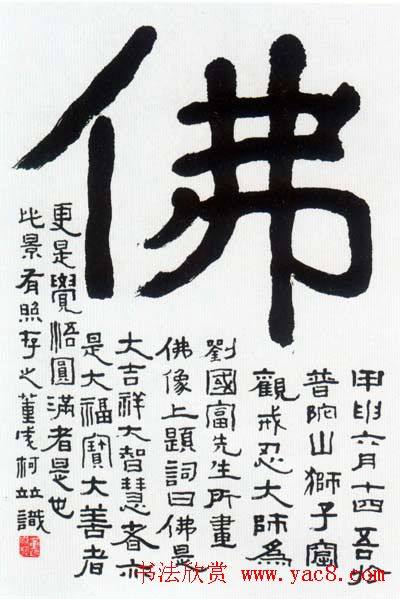 佛
甲申六月十四吾於
普陀山獅子窟
觀戒忍大師為
劉國富先生所畫
佛像上題詞曰佛是
大吉祥大智慧者亦
是大福寶大善者
更是覺悟圓滿者是也
此景有照存之董凌柯竝識
书法欣赏 www.yac8.com